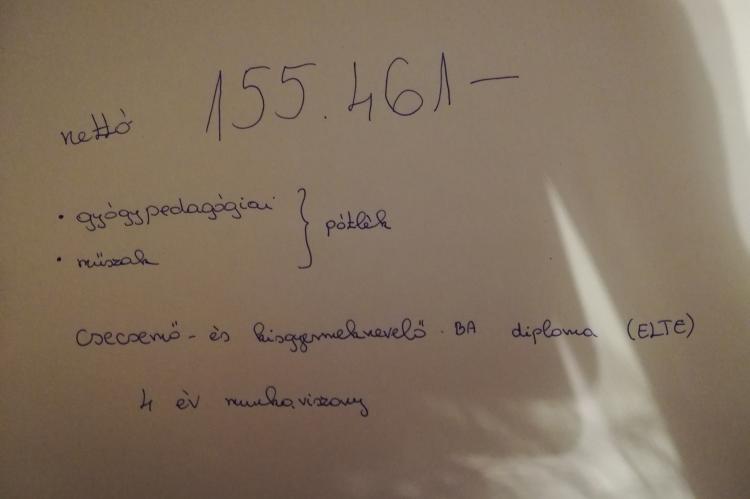 nettó 155.461-
• gyógypedagógiai } pótlék
• műszak
Csecsemő- és kisgyermeknevelő BA diploma (ELTE)
4 év munkaviszony